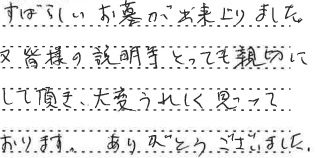 すばらしいお墓が出来上りました。
又皆様の説明手とっても親切に
して頂き、大変うれしく思って
おります。ありがとうございました。